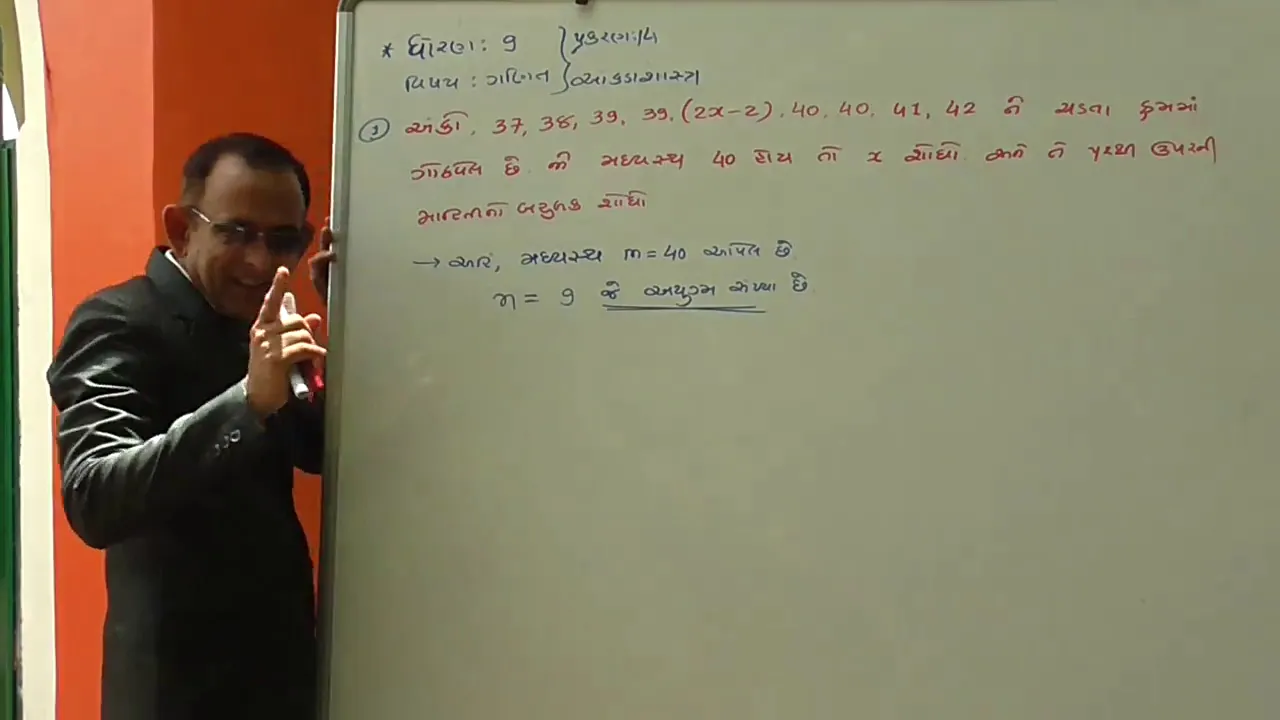 * ધોરણ : 9 } પ્રકરણ:14
વિષય : ગણિત } આંકડાશાસ્ત્ર
① અંકો, 37, 38, 39, 39, (2x-2), 40, 40, 41, 42 ને ચડતા ક્રમમાં
ગોઠવેલ છે. જો મધ્યસ્થ 40 હોય તો x શોધો અને તે પરથી ઉપરની
માહિતીનો બહુલક શોધો
→ અહિં, મધ્યસ્થ m = 40 આપેલ છે
n = 9 જે અયુગ્મ સંખ્યા છે.